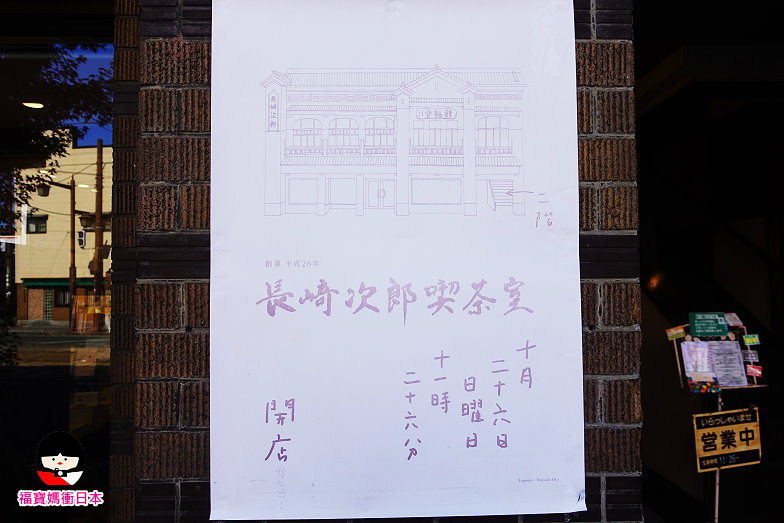 長崎次郎
二階
創業 平成26年
長崎次郎喫茶室
十月
二十六日
日曜日
十一時
二十六分
開店
いらっしゃいませ
営業中
営業時間 11:26~
福寶媽衝日本